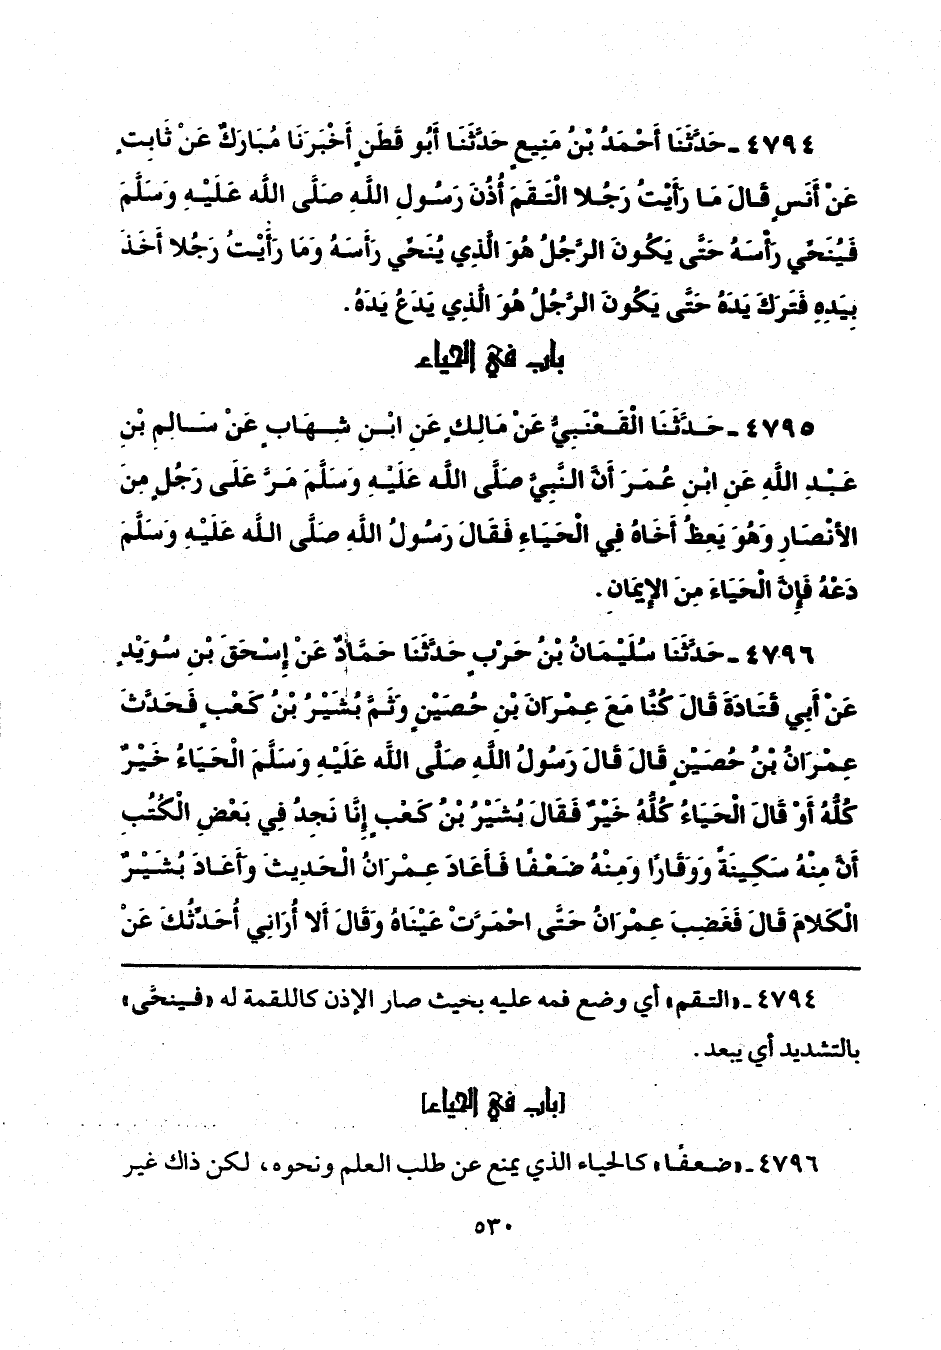 ٤٧٩٤ ـ حَدَّثَنَا أَحْمَدُ بْنُ مَنِيعٍ حَدَّثَنَا أَبُو قَطَنٍ أَخْبَرَنَا مُبَارَكٌ عَنْ ثَابِتٍ
عَنْ أَنَسٍ قَالَ مَا رَأَيْتُ رَجُلا الْتَقَمَ أُذُنَ رَسُولِ اللَّهِ صَلَّى اللَّه عَلَيْهِ وَسَلَّمَ
فَيُنَحِّي رَأْسَهُ حَتَّى يَكُونَ الرَّجُلُ هُوَ الَّذِي يُنَحِّي رَأْسَهُ وَمَا رَأَيْتُ رَجُلا أَخَذَ
بِيَدِهِ فَتَرَكَ يَدَهُ حَتَّى يَكُونَ الرَّجُلُ هُوَ الَّذِي يَدَعُ يَدَهُ .
باب في الحياء
٤٧٩٥ ـ حَدَّثَنَا الْقَعْنَبِيُّ عَنْ مَالِكٍ عَنِ ابْنِ شِهَابٍ عَنْ سَالِمِ بْنِ
عَبْدِ اللَّهِ عَنِ ابْنِ عُمَرَ أَنَّ النَّبِيَّ صَلَّى اللَّه عَلَيْهِ وَسَلَّمَ مَرَّ عَلَى رَجُلٍ مِنَ
الأنْصَارِ وَهُوَ يَعِظُ أَخَاهُ فِي الْحَيَاءِ فَقَالَ رَسُولُ اللَّهِ صَلَّى اللَّه عَلَيْهِ وَسَلَّمَ
دَعْهُ فَإِنَّ الْحَيَاءَ مِنَ الإِيمَانِ .
٤٧٩٦ ـ حَدَّثَنَا سُلَيْمَانُ بْنُ حَرْبٍ حَدَّثَنَا حَمَّادٌ عَنْ إِسْحَقَ بْنِ سُوَيْدٍ
عَنْ أَبِي قَتَادَةَ قَالَ كُنَّا مَعَ عِمْرَانَ بْنِ حُصَيْنٍ وَثَمَّ بُشَيْرُ بْنُ كَعْبٍ فَحَدَّثَ
عِمْرَانُ بْنُ حُصَيْنٍ قَالَ قَالَ رَسُولُ اللَّهِ صَلَّى اللَّه عَلَيْهِ وَسَلَّمَ الْحَيَاءُ خَيْرٌ
كُلُّهُ أَوْ قَالَ الْحَيَاءُ كُلُّهُ خَيْرٌ فَقَالَ بُشَيْرُ بْنُ كَعْبٍ إِنَّا نَجِدُ فِي بَعْضِ الْكُتُبِ
أَنَّ مِنْهُ سَكِينَةً وَوَقَارًا وَمِنْهُ ضَعْفًا فَأَعَادَ عِمْرَانُ الْحَدِيثَ وَأَعَادَ بُشَيْرٌ
الْكَلامَ قَالَ فَغَضِبَ عِمْرَانُ حَتَّى احْمَرَّتْ عَيْنَاهُ وَقَالَ أَلا أُرَانِي أُحَدِّثُكَ عَنْ
٤٧٩٤ ـ «التقم» أي وضع فمه عليه بحيث صار الإذن كاللقمة له «فينحَّى»
بالتشديد أي يبعد .
[باب في الحياء]
٤٧٩٦ ـ «ضعفًا» كالحياء الذي يمنع عن طلب العلم ونحوه، لكن ذاك غير
٥٣٠